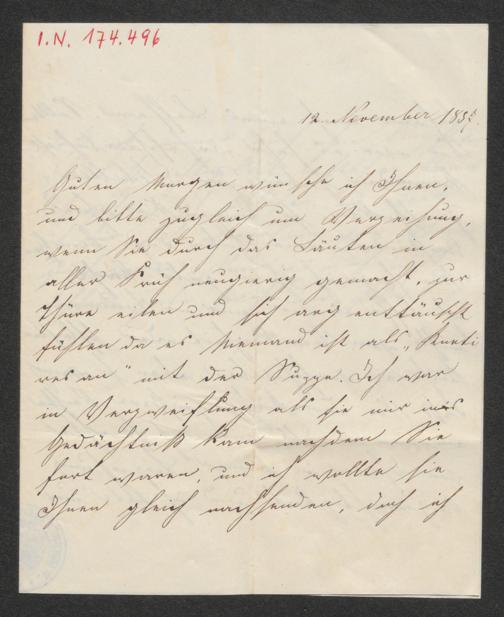 I.N. 174.496
12. November 188
Guten Morgen wünsche ich Ihnen,
und bitte zugleich um Verzeihung,
wenn Sie durch das Läuten in
aller Früh neugierig gemacht, zur
Thüre eilen und sich arg enttäuscht
fühlen da es Niemand ist als
mit der Suppe. Ich war
in Verzweiflung als sie mir ins
Gedächtniß kam nachdem Sie
fort waren, und ich wollte sie
Ihnen gleich nachsenden, doch ich